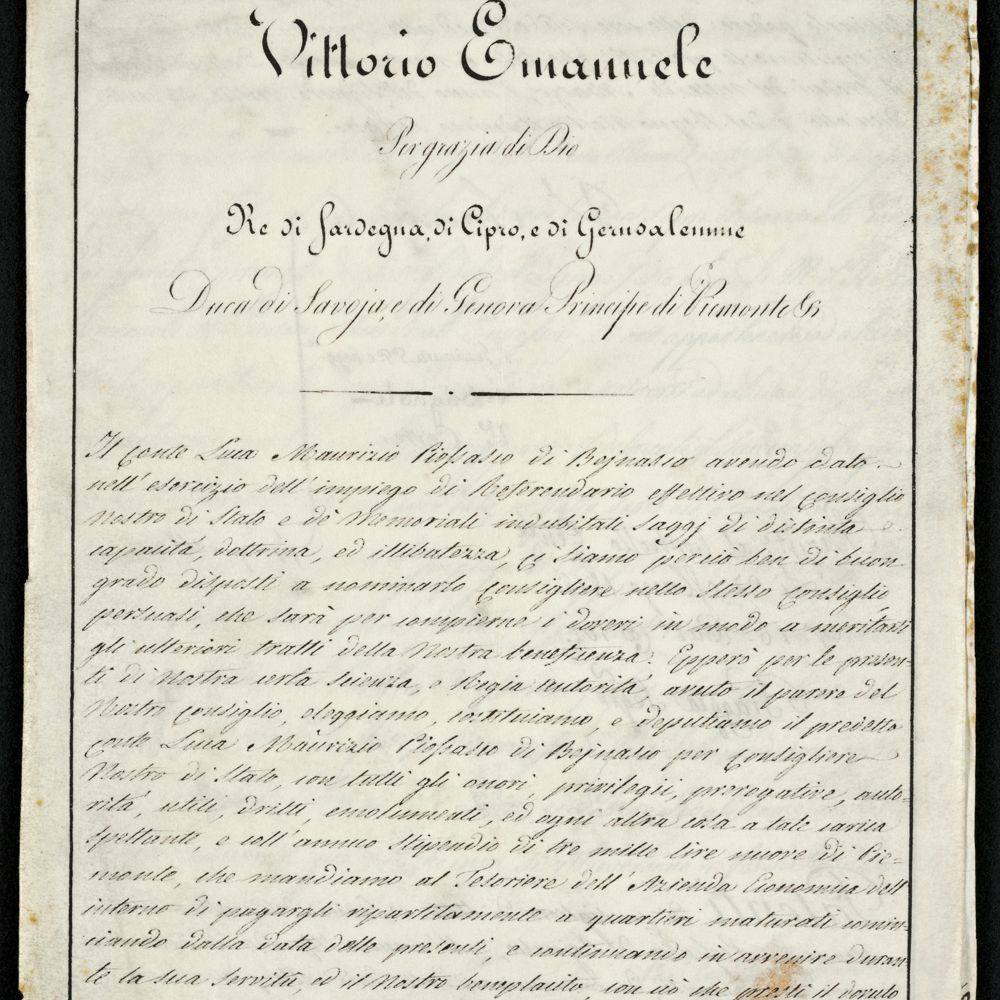 Vittorio Emanuele
Per grazia di Dio
Re di Sardegna, di Cipro, e di Gerusalemme
Duca di Savoja, e di Genova Principe di Piemonte &
Il Conte Luca Maurizio Piossasco di Bejnasco avendo dato
nell'esercizio dell'impiego di Referendario effettivo nel Consiglio
Nostro di Stato e dè Memoriali indubitati saggj di distinta
capacità, dottrina, ed illibatezza, ci siamo perciò ben di buon
grado disposti a nominarlo Consigliere nello stesso Consiglio
persuasi, che sarà per compierne i doveri in modo a meritarsi
gli ulteriori tratti della Nostra beneficenza: Epperò per le presen-
ti di Nostra certa scienza, e Regia autorità, avuto il parere del
Nostro Consiglio, eleggiamo, costituiamo, e deputiamo il predetto
Conte Luca Maurizio Piossasco di Bejnasco per Consigliere
Nostro di Stato, con tutti gli onori, privilegii, prerogative, auto-
rità, utili, dritti, emolumenti, ed ogni altra cosa a tale carica
spettante, e coll'annuo stipendio di tre mille lire nuove di Pie-
monte, che mandiamo al Tesoriere dell'Azienda Economica dell'
interno di pagargli ripartitamente a quartieri maturati comin-
ciando dalla data delle presenti, e continuando in avvenire duran-
te la sua servitù, ed il Nostro beneplacito, con ciò che presti il dovuto